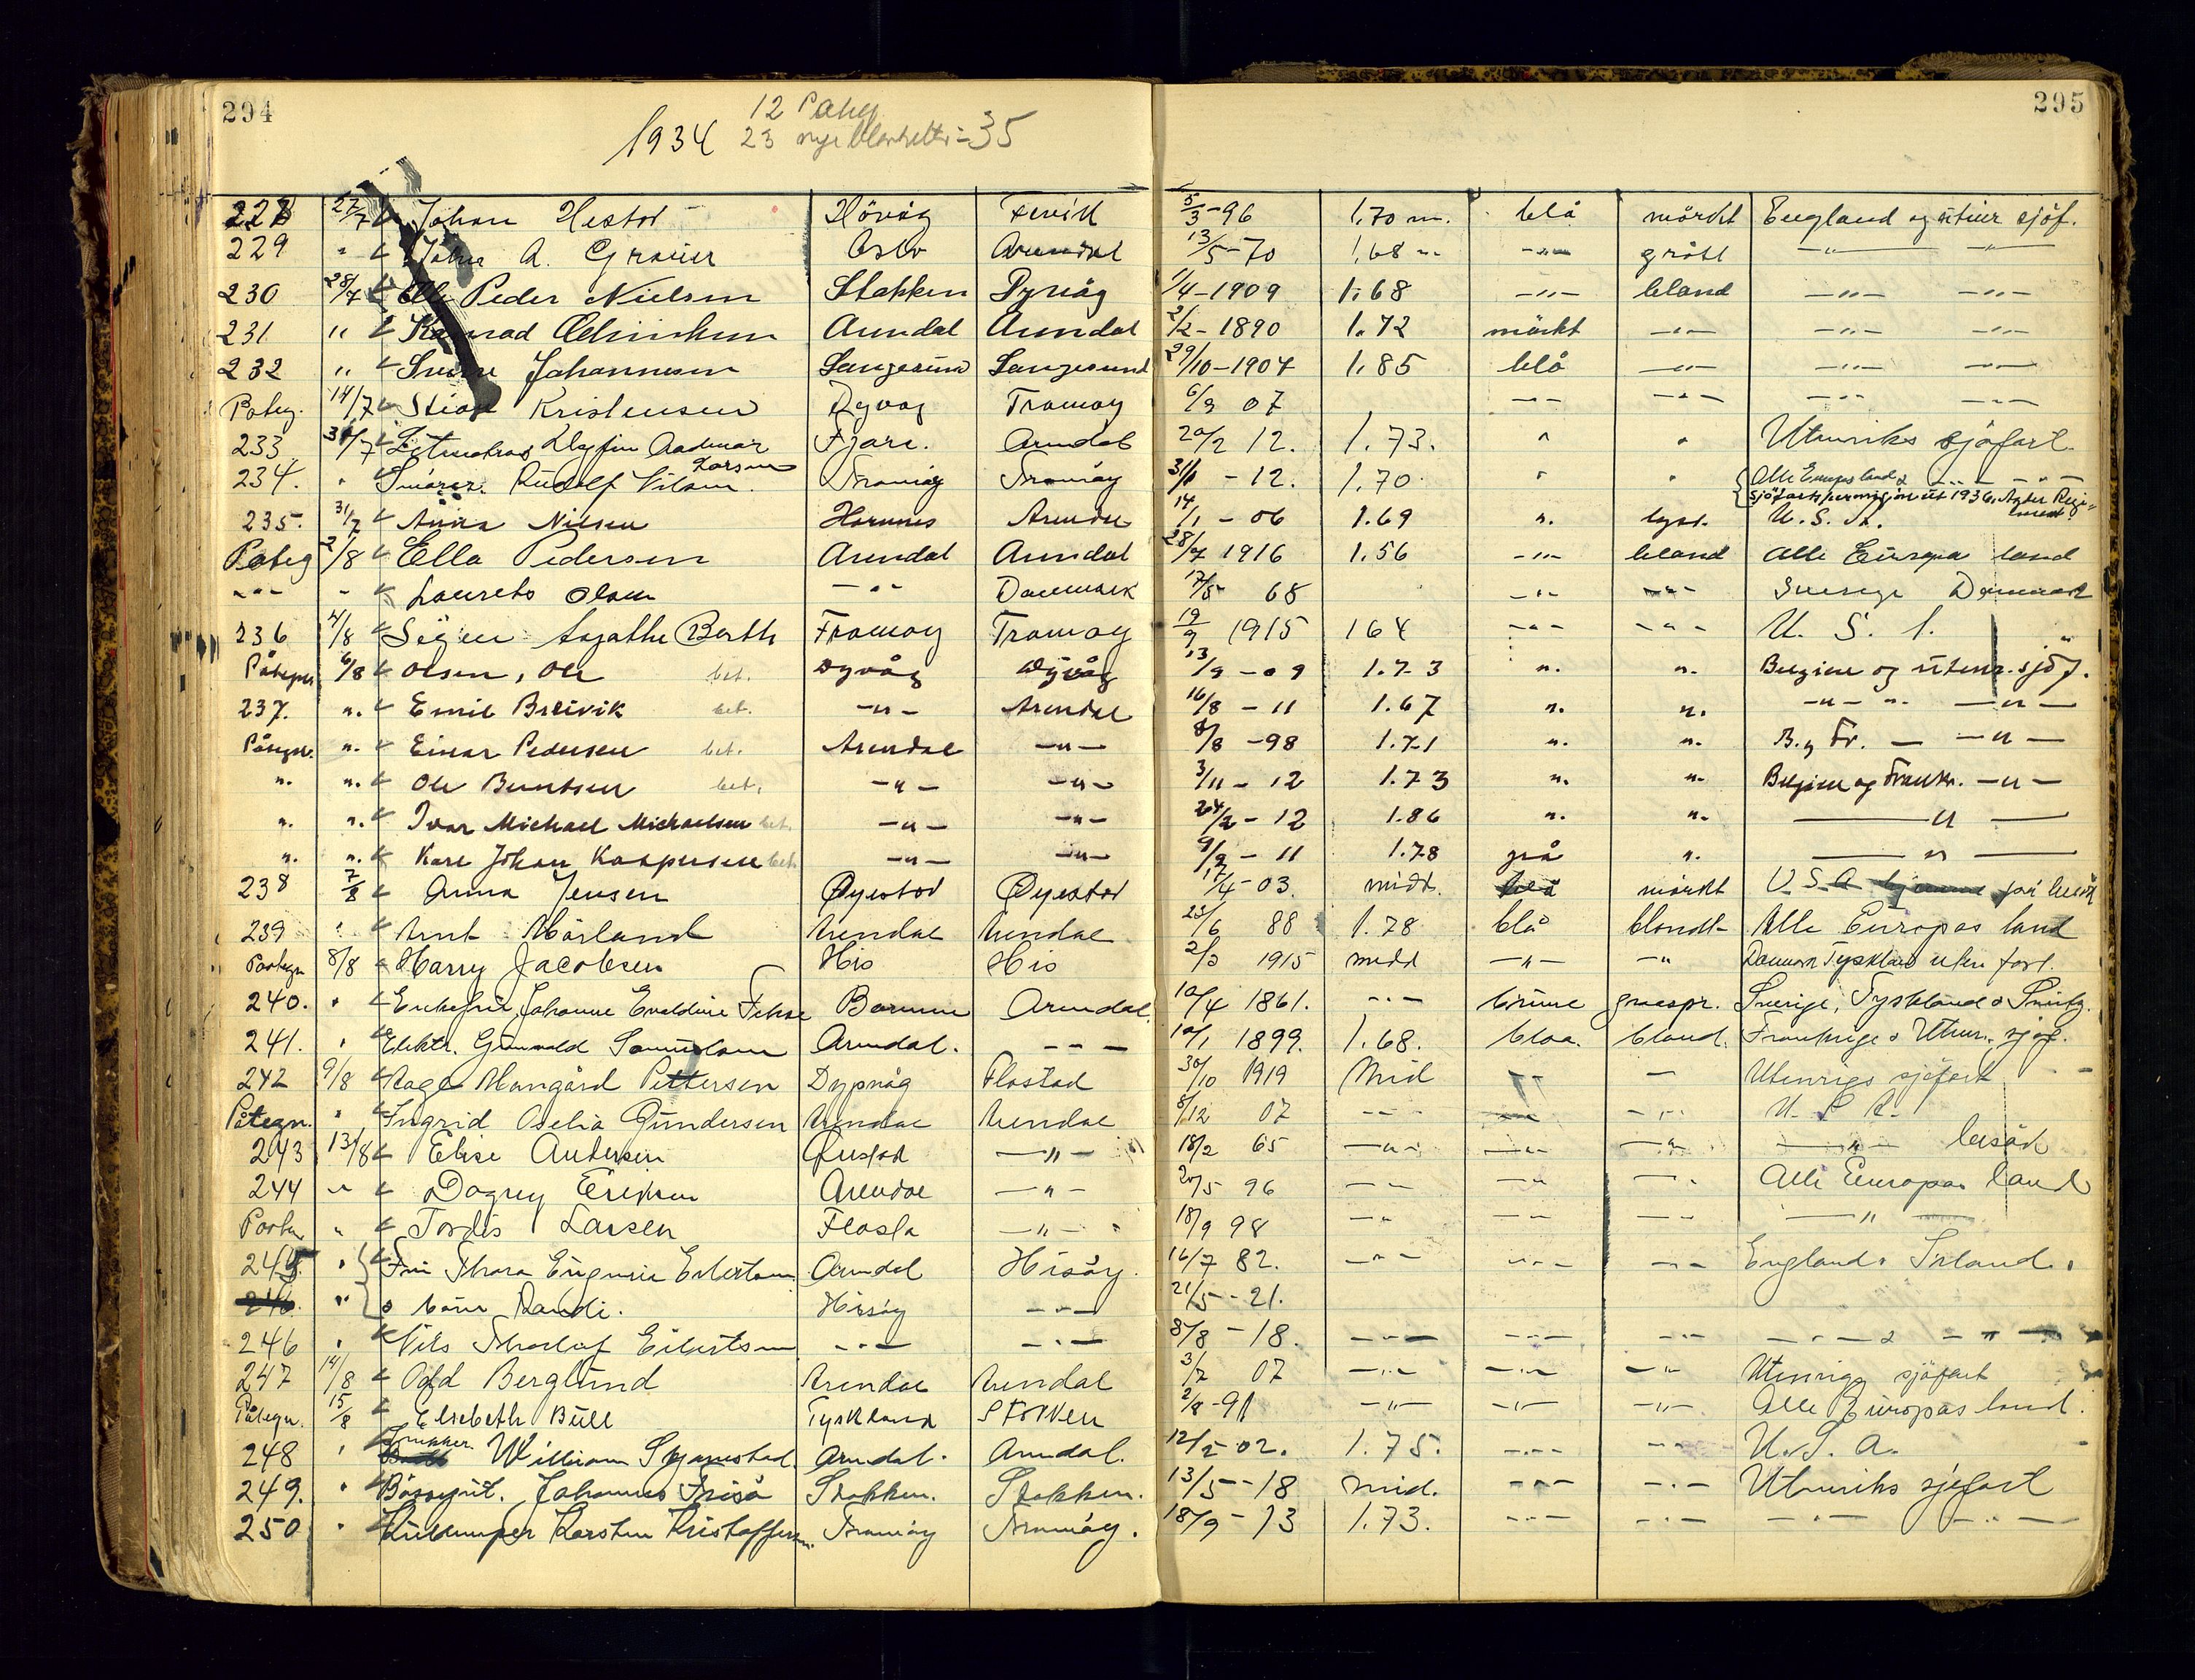 294
295
1934
12 Pateg
23 nye blanketter = 35
228 27/7 Johan Hestod Hövåg Fevik 5/3-96 1.70 m. blå mörkt England og utenr sjöf.
229 " John A. Oslo Arendal 13/5-70 1,68 -"- grått -"- -"-
230 28/7 Peder Nielsen Stokken Dyvåg 1/4-1909 1.68 -"- blond -"- -"-
231 " Konrad Arendal Arendal 2/2-1890 1.72 mörkt -"- -"- -"-
232 " Sverre Johannesen Langesund Langesund 29/10-1904 1.85 blå -"- -"- -"-
Pateg. 14/7 Kristensen Dyvag Tromøy 6/9 07 -"- -"- -"- -"-
233 30/7 Dagfin Aadmar Larsen Fjære. Arendal 20/2 12. 1.73. " " Utenriks sjöfart
234. " Smörer. Rudolf Nilsen. Tromöy Tromöy 31/1 - 12. 1.70 " " Alle Europas land & -"- -"-
sjöfarts permisjon ut 1936. Agder Regiment.
235. 31/7 Anna Nilsen Hornnes Arendal 14/1 - 06 1.69 ". lyst. U.S.A.
Pateg 2/8 Ella Pedersen Arendal Arendal 28/7 1916 1.56 -"- blond alle Europa land
-"- - Laurets Olsen -"- Danmark 17/5 68 -"- -"- Sverige Danmark
236 4/8 Signe Agathe Berth Tromøy Tromøy 19/9 1915 164 -"- -"- U. S. A.
Påtegn 6/8 Olsen, Ole bet. Dyvåg Dyvåg 13/9 - 09 1.73 ". ". Belgien og utenr. sjöf.
237. ". Emil Breivik bet. -"- Arendal 16/8 - 11 1.67 ". ". -"- ". -"-
Påtegn. ". Einar Pedersen bet. Arendal -"- 8/8 -98 1.71 ". ". B. og Fr. - -"-
". ". Ole Berntsen bet. -"- -"- 3/11 - 12 1.73 ". ". Belgien og Frankr. -"-
". ". Ivar Michael Michaelsen bet. -"- -"- 24/2 - 12 1.86 ". ". -"-
". ". Kare Johan Kaspersen bet. -"- -"- 9/9 - 11 1.78 grå ". -"-
238 7/8 Anna Jensen Øyestad Øyestad 17/4-03. midd. blå mörkt U.S.A. på besøk
239 " Arnt Mörland Arendal Arendal 23/6 88 1.78 blå blondt Alle Europas land
Paategn 8/8 Harry Jacobsen His His 2/3 1915 midd -"- -"- Danmark Tyskland uten fart.
240. " Enkefru Johanne Evaldine Arendal. 10/4 1861. -"- brune graaspr. Sverige, Tyskland &
241. " Elektr. Arendal. -"- 10/1 1899. 1.68. blaa. blond. Frankrige & Utenr. sjöf.
242 9/8 Aage Mangård Pettersen Dypvåg Flostad 30/10 1919 Mid -"- - Utenrigs sjöfart
Påtegn. " Ingrid Oselia Gundersen Arendal Arendal 8/12 07 -"- -"- -"- U. S. A.
243 13/8 Elise Andersen Arendal -"- 18/2 65 -"- -"- -"- -"- besök
244 " Dagny Eriksen Arendal -"- 20/5 96 -"- -"- -"- Alle Europas land
Paateg " Tordis Larsen Flosta -"- 18/9 98 -"- -"- -"- -"-
245 " Fru Thora Eugenie Arendal Hisöy. 16/7 82. -"- -"- -"- England & Irland.
246. " & barn Randi. Hisöy -"- 21/5 - 21.
246 " Nils Thorolf -"- -"- 8/8 - 18. -"- -"- -"- -"- & -"-
247 14/8 Odd Berglund Arendal Arendal 3/7 07 -"- -"- -"- Utenrigs sjöfart
Påtegn. 15/8 Elsebeth Bull Tyskland Stokken 2/8-91 -"- -"- -"- Alle Europas land.
248 " William Arendal. Arendal. 12/2-02. 1.75. -"- -"- U.S.A.
249. " Johannes Stokken. Stokken. 13/5-18 mid. -"- -"- Utenriks sjøfart
250 " Kullemper Karsten Kristoffersen. Tromöy Tromöy. 18/9-13 1.73. -"- -"- -"- -"-